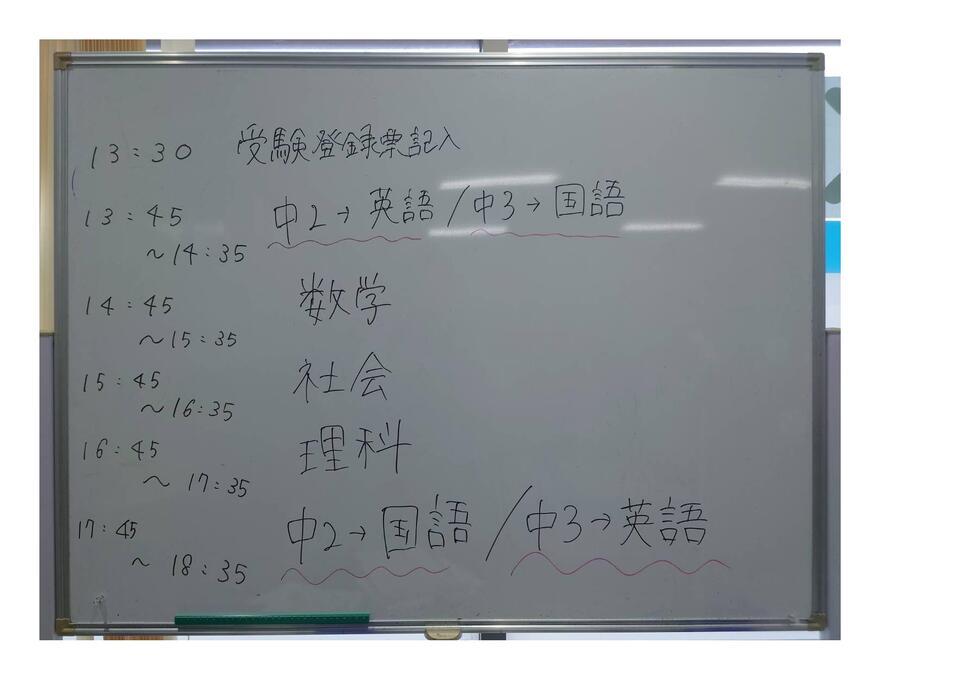 13:30 受験登録票記入
13:45 中2→英語/中3→国語
～14:35
14:45 数学
～15:35
15:45 社会
～16:35
16:45 理科
～17:35
17:45 中2→国語/中3→英語
～18:35